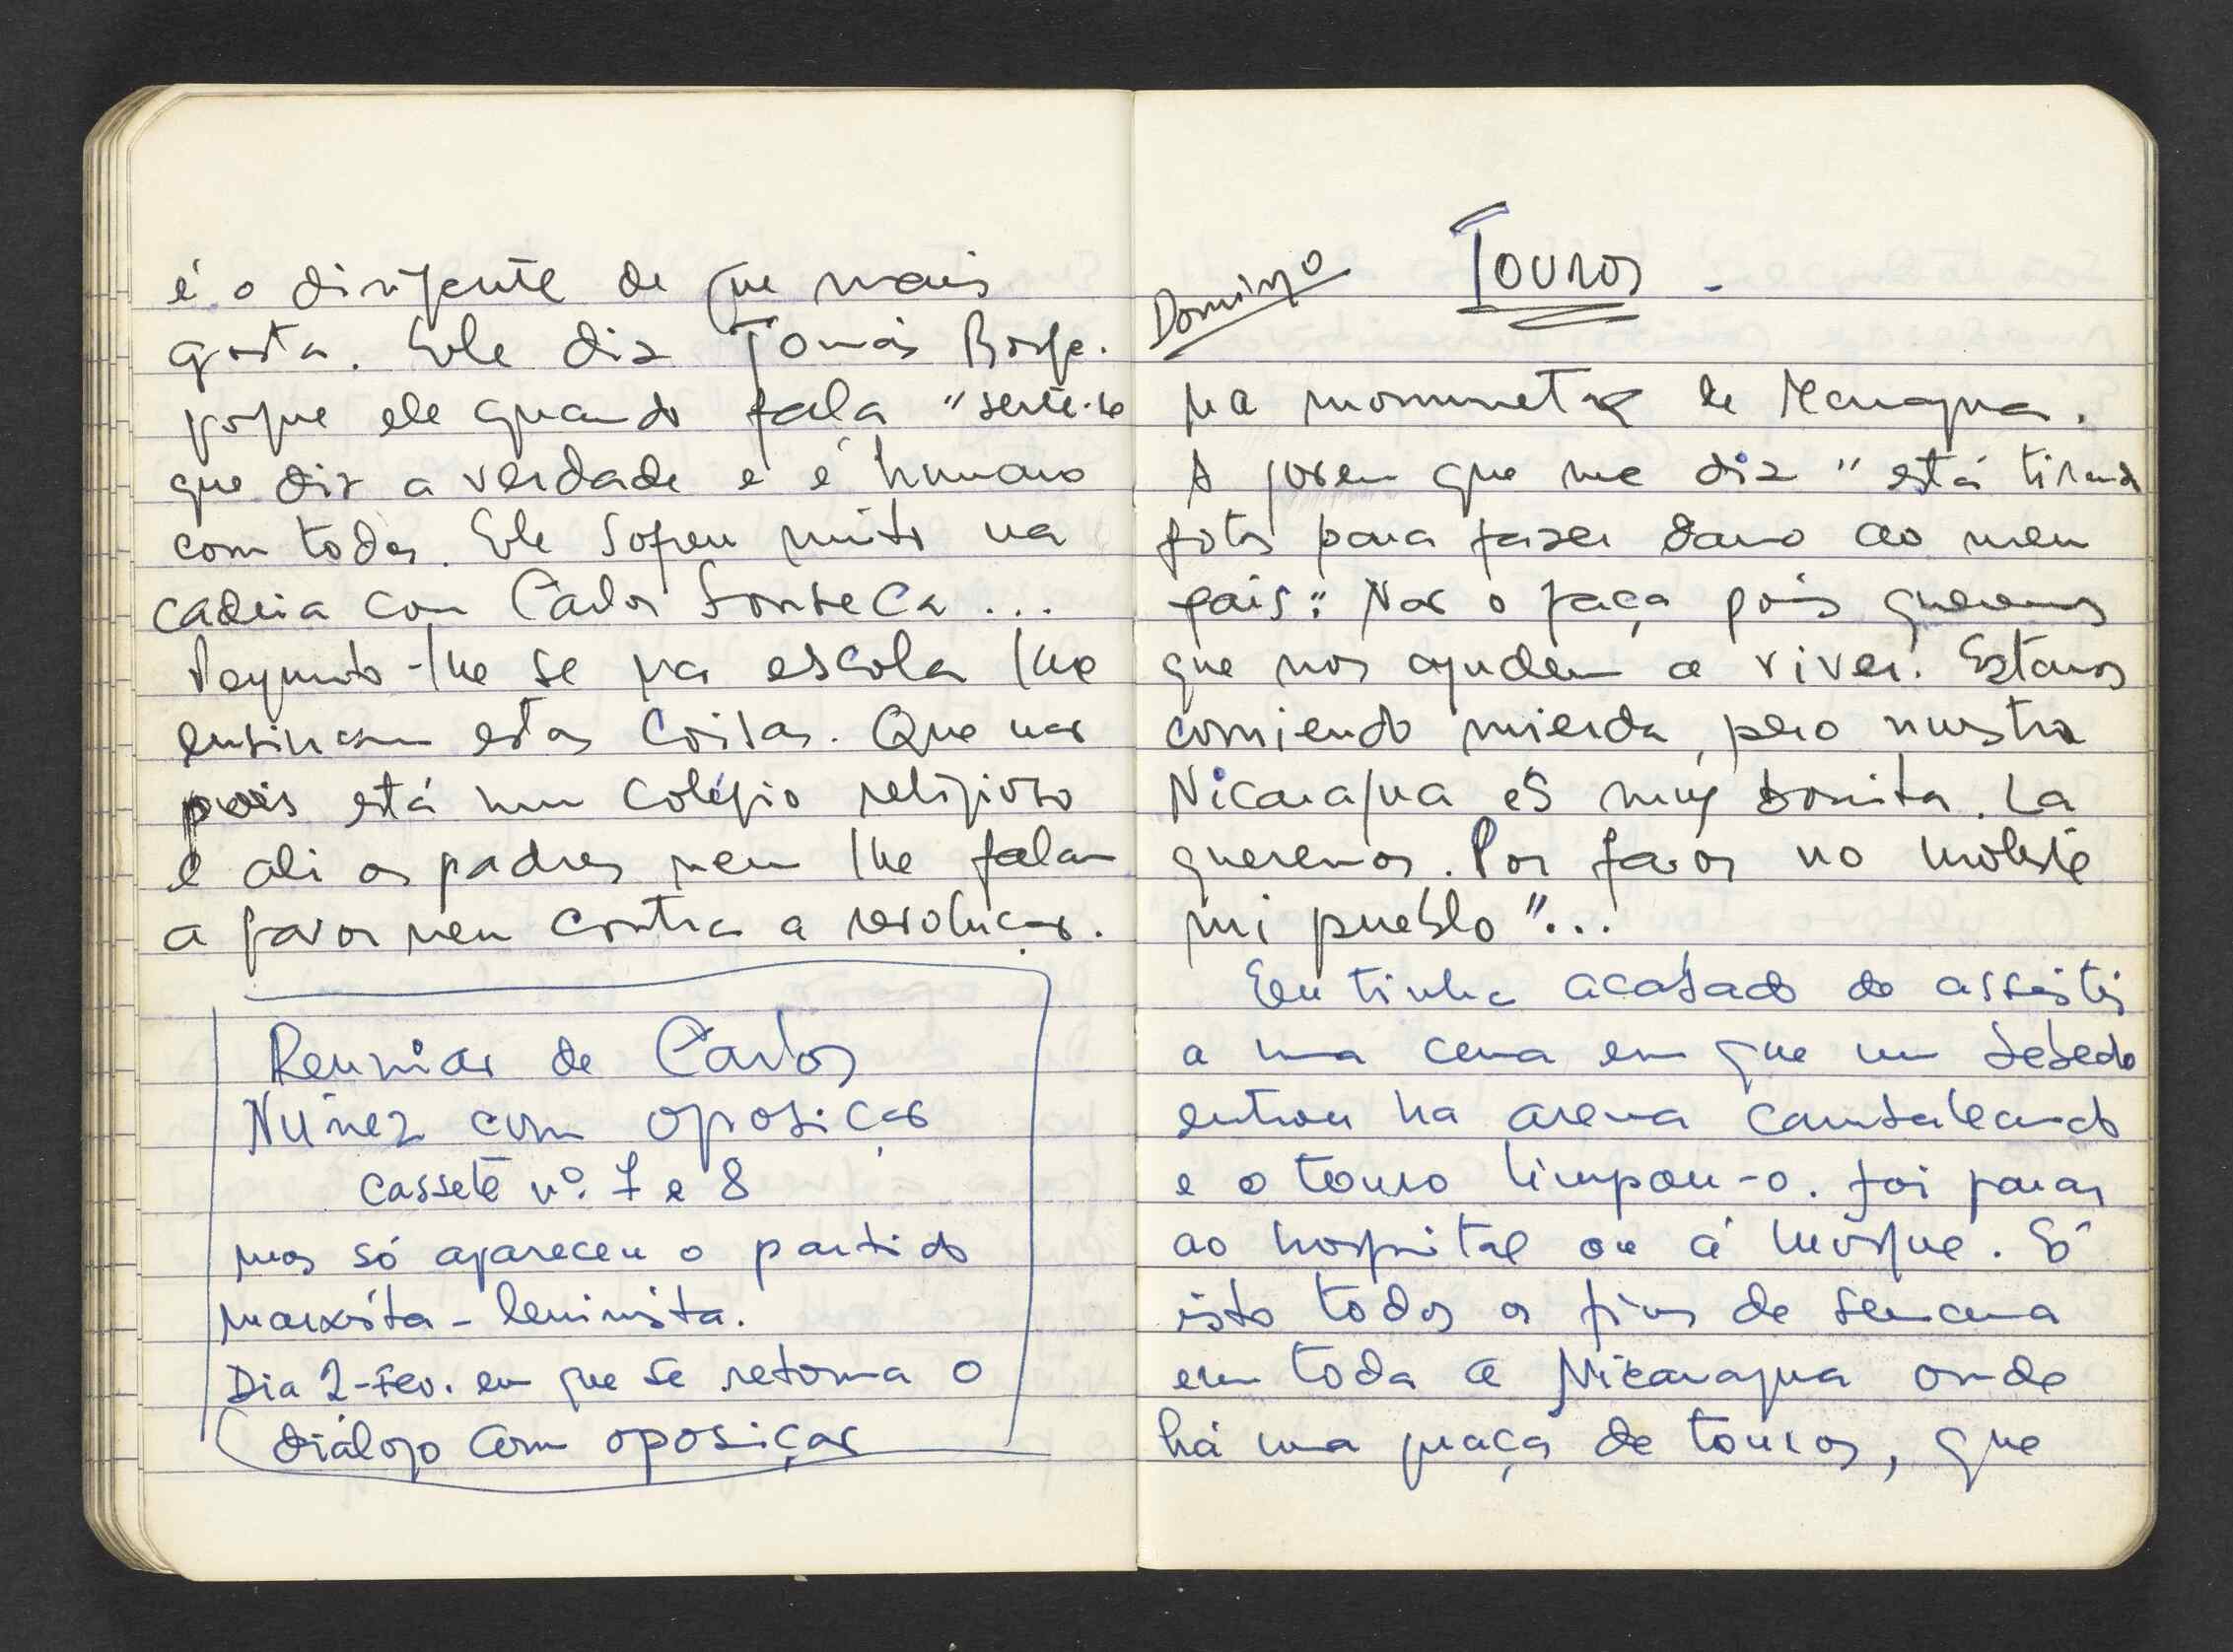 é o dirigente de que mais
gosta. Ele diz Tomás Borge.
porque ele quando fala "sente-se
que diz a verdade e é humano
com todos. Ele sofreu muito na
cadeia com Carlos Fonseca...
Pergunto-lhe se na escola lhe
ensinam estas coisas. Que não
pois está num colégio religioso
e ali os padres nem lhe falam
a favor nem contra a revolução.
Reunião de Carlos
Núnez com oposição
cassete nº. 7 e 8
mas só apareceu o partido
marxista-leninista.
Dia 2-Fev. em que se retoma o
diálogo com oposição
Domingo Touros -
na monumental de Managua.
A jovem que me diz "está tirando
fotos para fazer dano ao meu
país: Não o faça pois queremos
que nos ajudem a viver. Estamos
comiendo mierda, pero nuestra
Nicaragua es muy bonita. La
queremos. Por favor no moleste
mi pueblo"...
Eu tinha acabado de assistir
a uma cena em que um bebedo
entrou na arena cambaleando
e o touro limpou-o. foi parar
ao hospital ou à morgue. É
isto todos os fins de semana
em toda a Nicaragua onde
há uma praça de touros, que